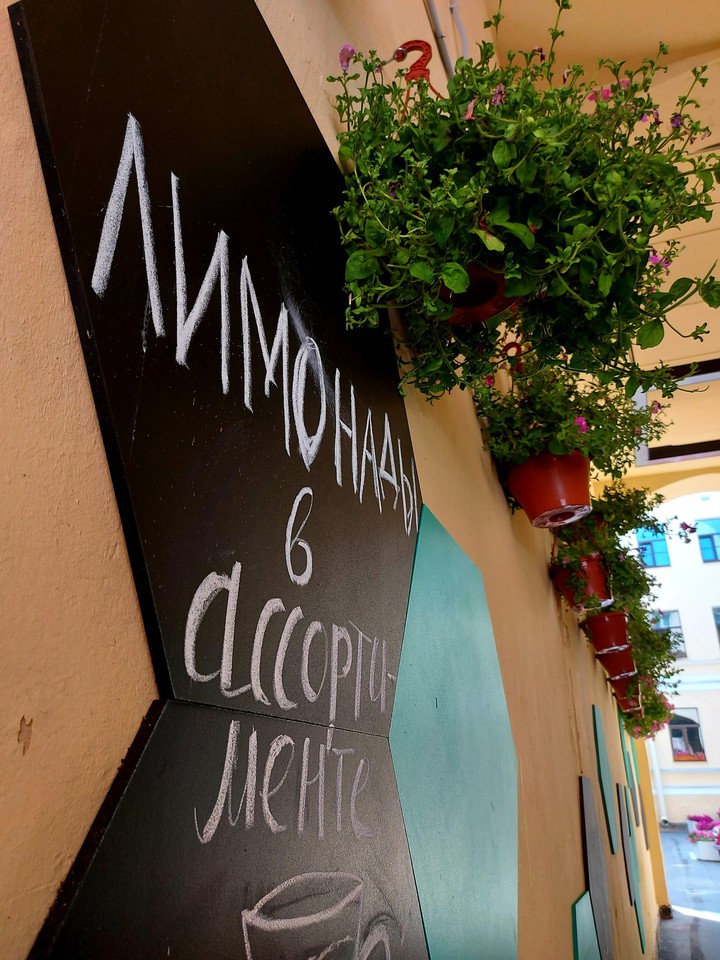 ЛИМОНАДЫ
в
ассорти-
менте